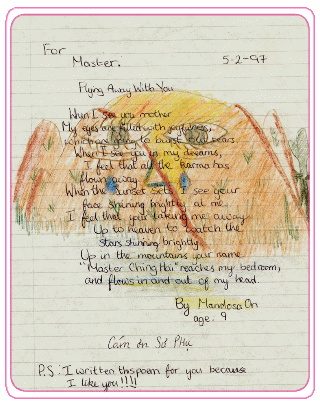 For
Master.
5-2-97
Flying Away With You
When I see you mother
My eyes are filled with joyfulness,
which are going to burst into tears
When I see you in my dreams,
I feel that all the Karma has
flown away
When the sunset set I see your
face shining brightly at me
I feel that your taking me away
Up to heaven to watch the
stars shinning brightly
Up in the mountains your name
"Master Ching Hai" reaches my bedroom,
and flows in and out of my head.
By Mandosa On
age: 9
Cám ơn Sư Phụ
P.S: I written this poem for you because
I like you!!!!